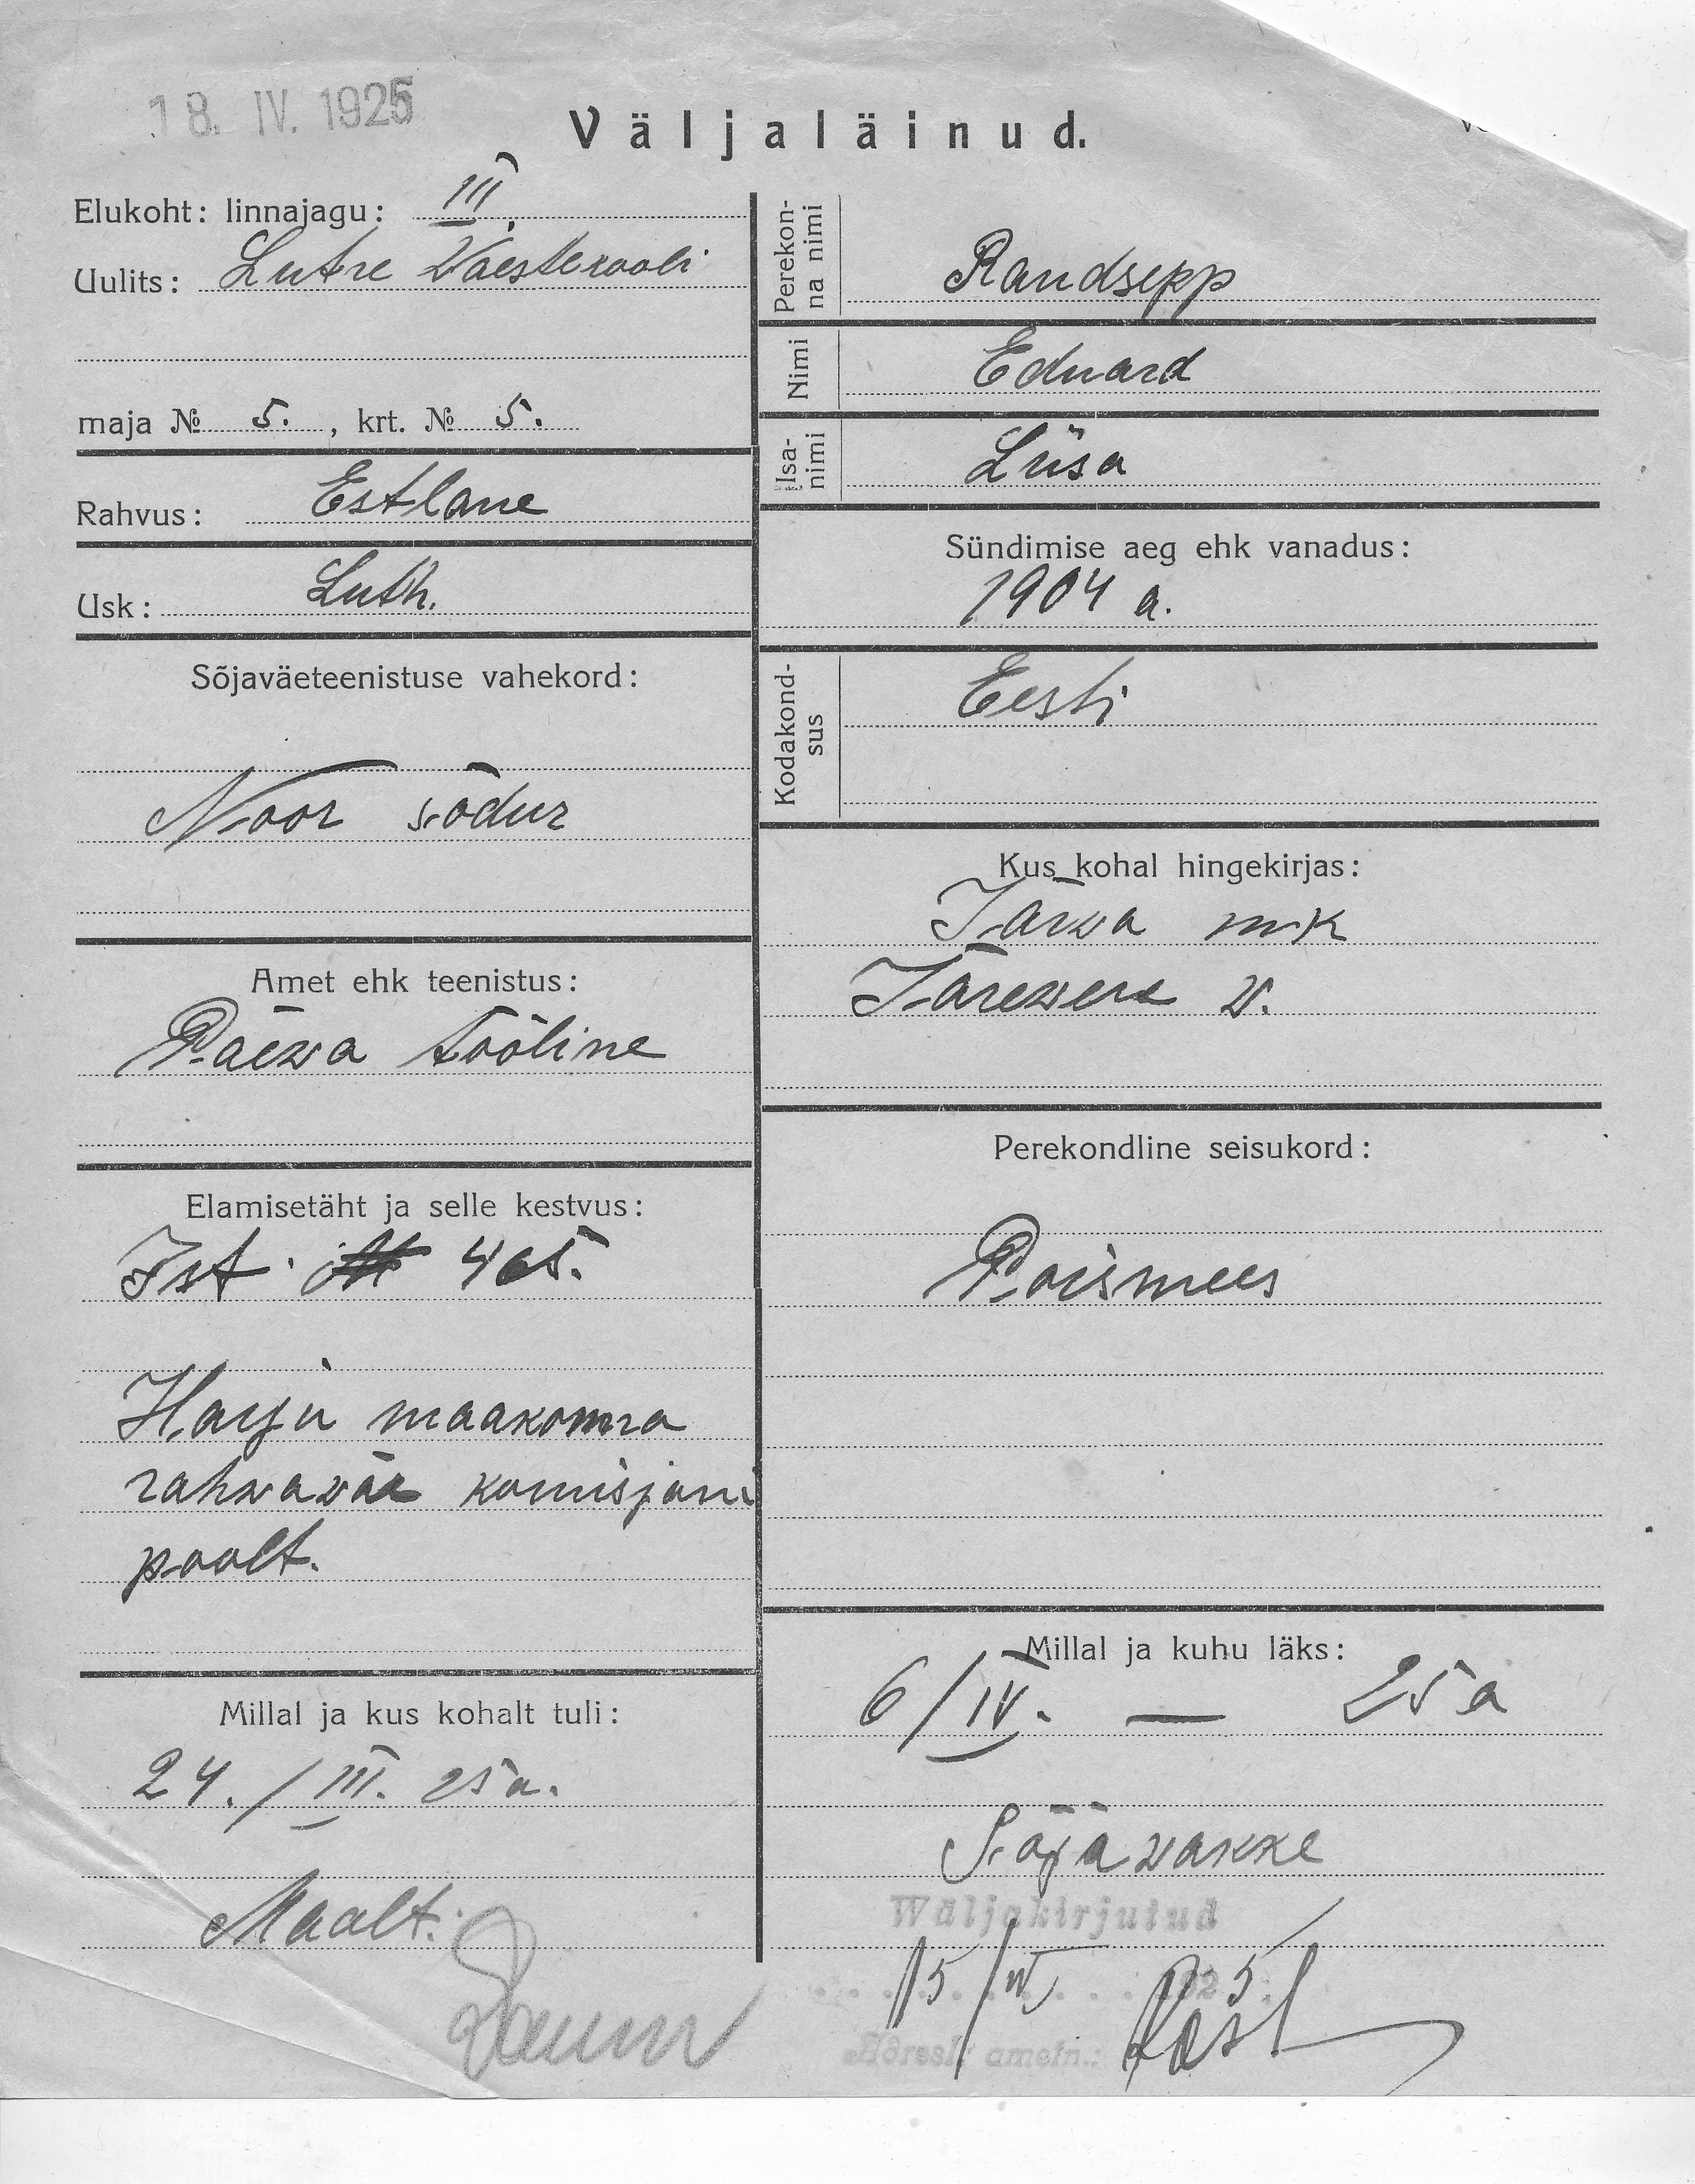 18. IV. 1925
Väljaläinud.
Elukoht: linnajagu: III.
Uulits: Lutre
maja № 5. , krt. № 5.
Rahvus: Estlane
Usk: Luth.
Sõjaväeteenistuse vahekord:
Noor sõdur
Amet ehk teenistus:
Päewa tööline
Elamisetäht ja selle kestvus:
Ist. 465.
Harju maakonna
rahvaväe komisjoni
poolt.
Millal ja kus kohalt tuli:
24. / III. 25 a.
Maalt.
Perekon-
na nimi
Randsepp
Nimi
Eduard
Isa-
nimi
Liisa
Sündimise aeg ehk vanadus:
1904 a.
Kodakond-
sus
Eesti
Kus kohal hingekirjas:
Järwa mk
Särewere w.
Perekondline seisukord:
Poismees
Millal ja kuhu läks:
6/IV. — 25 a
Sõjaväkke
Wäljakirjutud
15/IV 1925.
Adressl. ametn.: